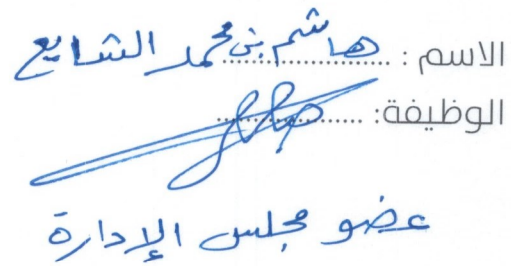 الاسم : هاشم بن محمد الشايع
الوظيفة:
عضو مجلس الإدارة